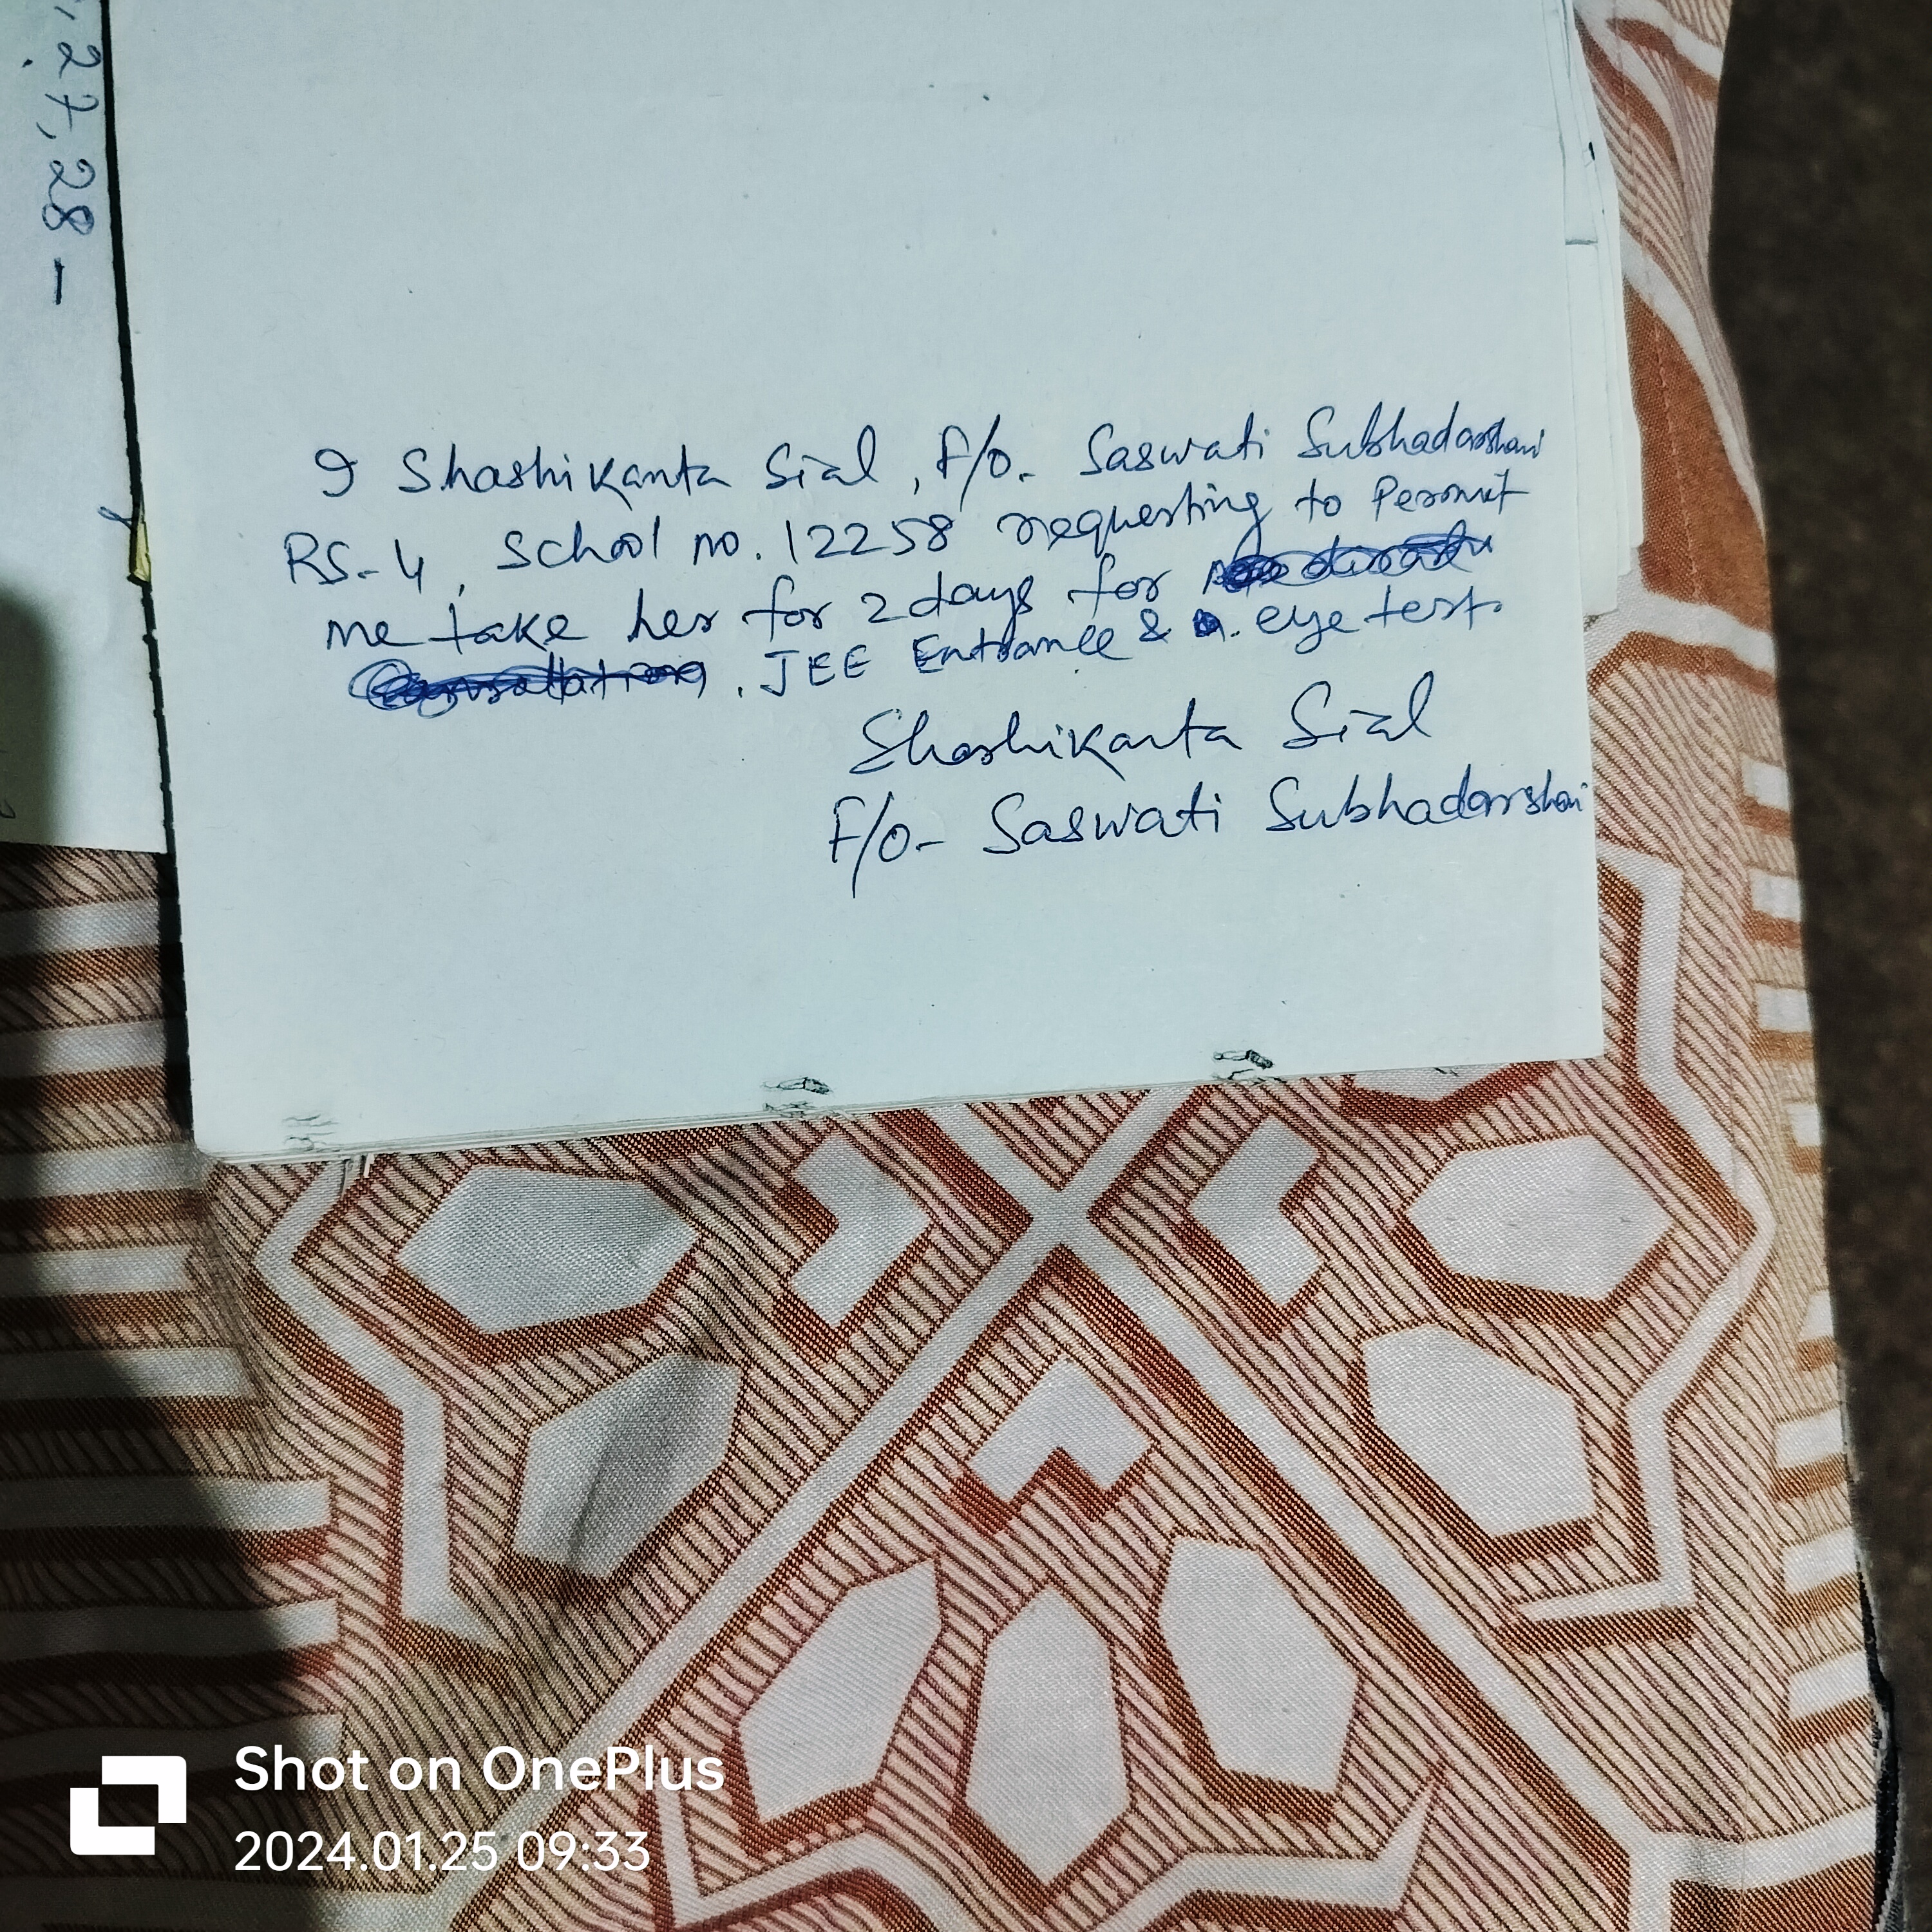 , 27, 28 -
I Shashikanta Sial, F/o- Saswati Subhadarshani
RS-4, School no. 12258 requesting to Permit
me take her for 2 days for
, JEE Entrance & eye test.
Shashikanta Sial
F/o- Saswati Subhadarshani
Shot on OnePlus
2024.01.25 09:33